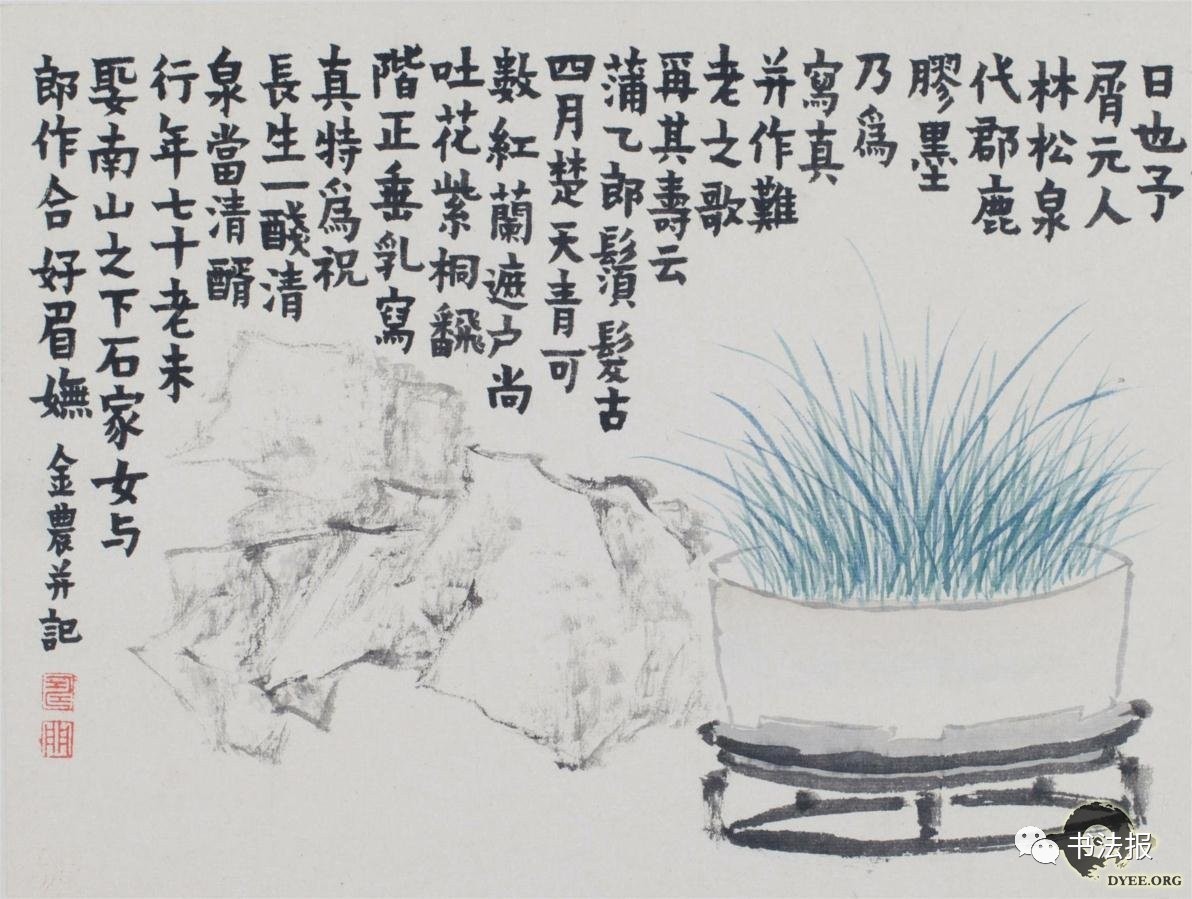 日也予
屑元人
林松泉
代郡鹿
膠墨
乃爲
寫真
并作難
老之歌
再其壽云
蒲乙郎鬚髮古
四月楚天青可
數紅蘭遮户尚
吐花紫桐飜
階正垂乳寫
真特爲祝
長生一醆清
泉當清醑
行年七十老未
娶南山之下石家女与
郎作合好眉嫵
金農并記
书法报
DYEE.ORG